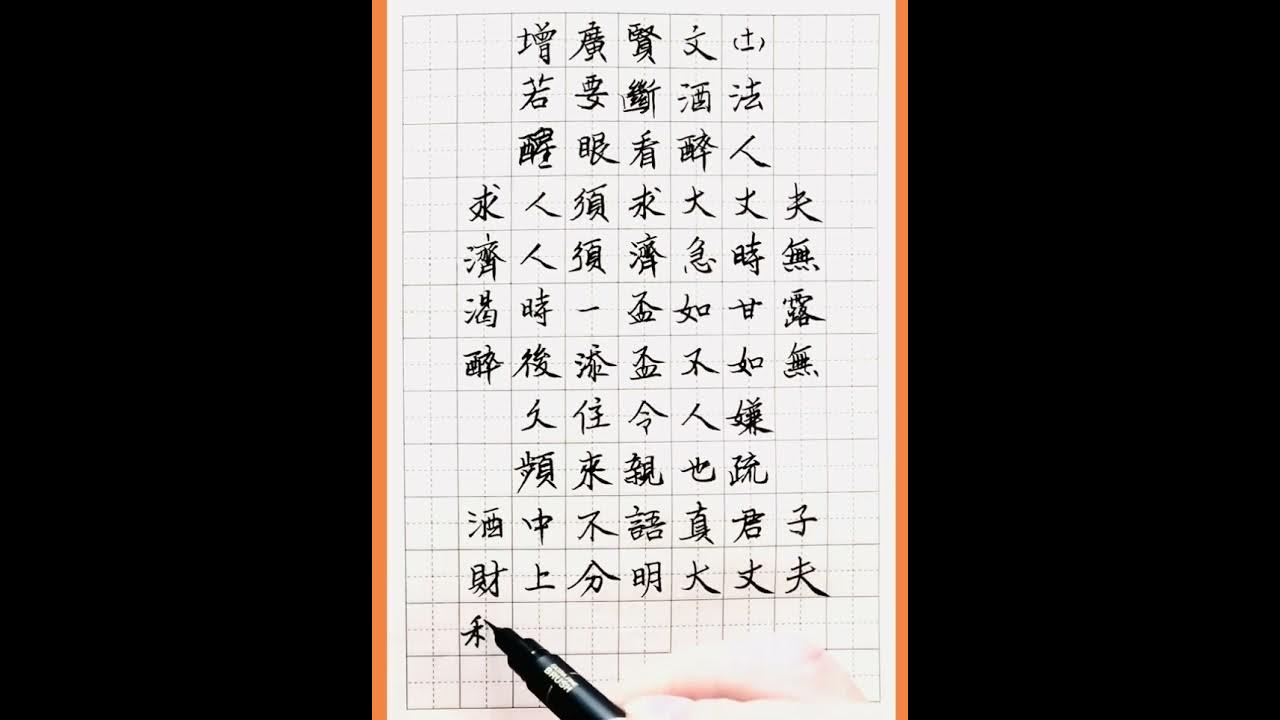 增廣賢文(十一)
若要斷酒法
醒眼看醉人
求人須求大丈夫
濟人須濟急時無
渴時一盃如甘露
醉後添盃不如無
久住令人嫌
頻來親也疏
酒中不語真君子
財上分明大丈夫
禾
BRUSH